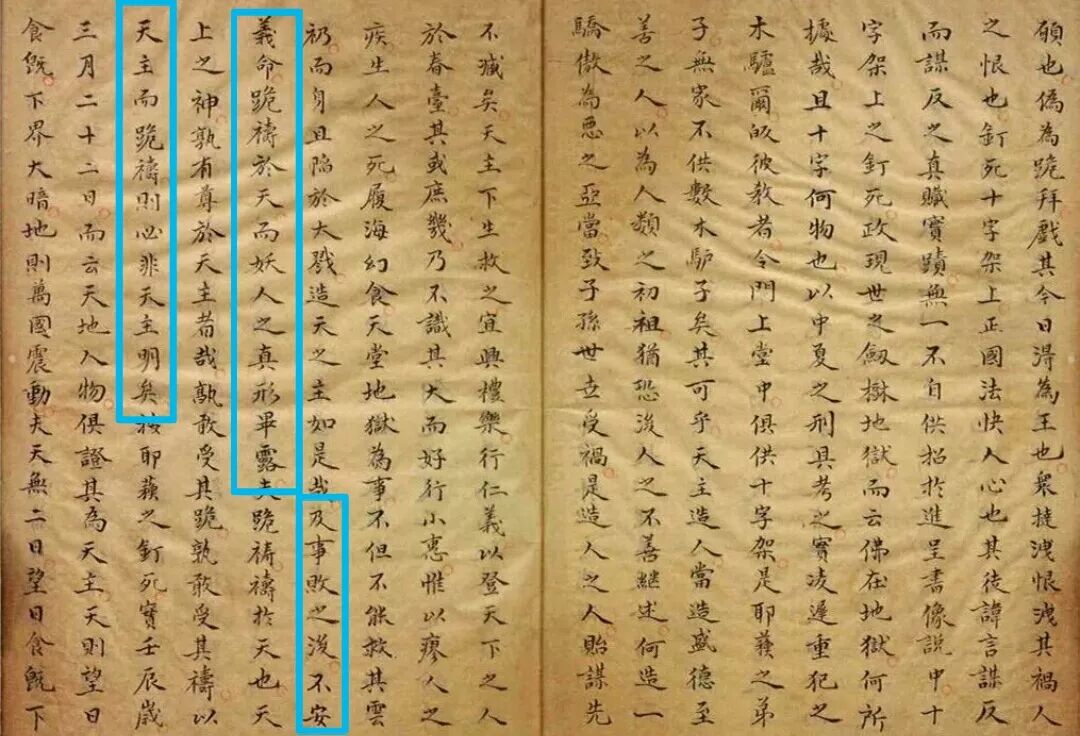 願也偽為跪拜戲其今日得為王也衆撻洩恨洩其禍人
之恨也釘死十字架上正國法快人心也其徒諱言謀反
而謀反之真贓實蹟無一不自供招於進呈書像説中十
字架上之釘死政現世之劔樹地獄而云佛在地獄何所
據哉且十字何物也以中夏之刑具考之實凌遲重犯之
木驢爾皈彼教者令門上堂中俱供十字架是耶蘓之弟
子無家不供數木馿子矣其可乎天主造人當造盛德至
善之人以為人類之初祖猶恐後人之不善継述何造一
驕傲為惡之亞當致子孫世世受禍是造人之人貽謀先
不臧矣天主下生救之宜興禮樂行仁義以登天下之人
於春臺其或庶幾乃不識其大而好行小惠惟以瘳人之
疾生人之死履海幻食天堂地獄為事不但不能救其雲
礽而身且陷於大戮造天之主如是哉及事敗之後不安
義命跪禱於天而妖人之真形畢露夫跪祷禱於天也天
上之神孰有尊於天主者哉孰敢受其跪孰敢受其禱以
天主而跪禱則必非天主明矣按耶蘓之釘死實壬辰歲
三月二十二日而云天地人物俱證其為天主天則望日
食既下界大暗地則萬國震動夫天無二日望日食既下